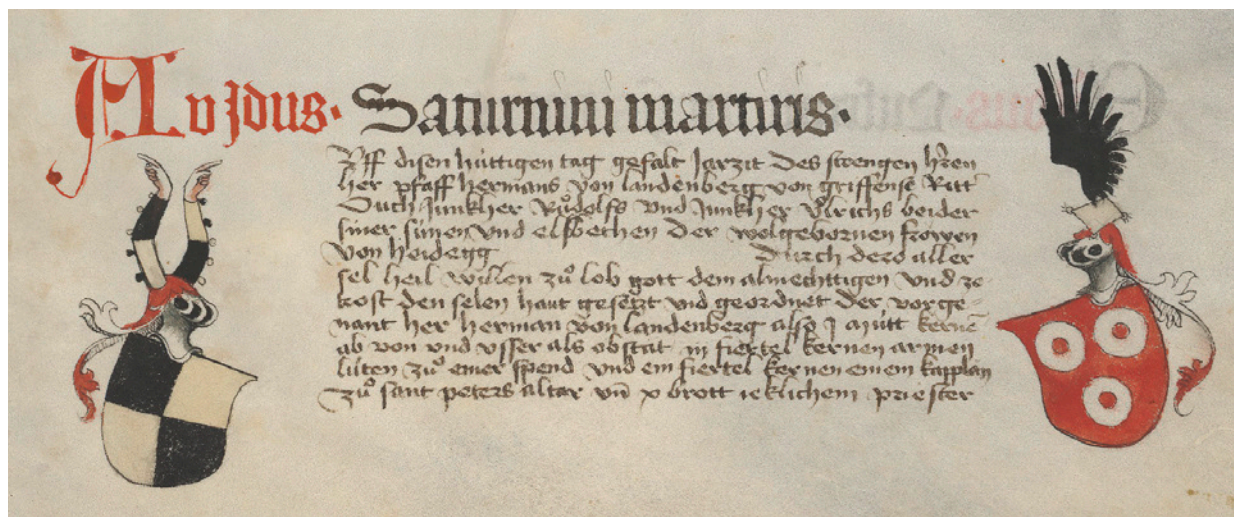 A v Jdus · Saturnini martiris ·
Vff disen hüttigen tag gefalt Jarzit des strengen h̄ren
her pfaff hermans von landenberg von griffense Ritt
Ouch Junkher Růdolfs vnd Junkher Vlrichs beider
siner sünen vnd elsbethen der wolgebornen frowen
von heidegg durch dero aller
sel heil willen zů lob gott dem almechttigen vnd ze
trost den selen hant gesetzt vnd geordnet der vorge-
nant her herman von landenberg also j mütt kernē
ab von vnd vsser als obstat iij fiertel kernen armen
lüten zů einer spend vnd ein fiertel kernen einem kapplan
zů sant peters altar vn̄ x brott ieklichem priester